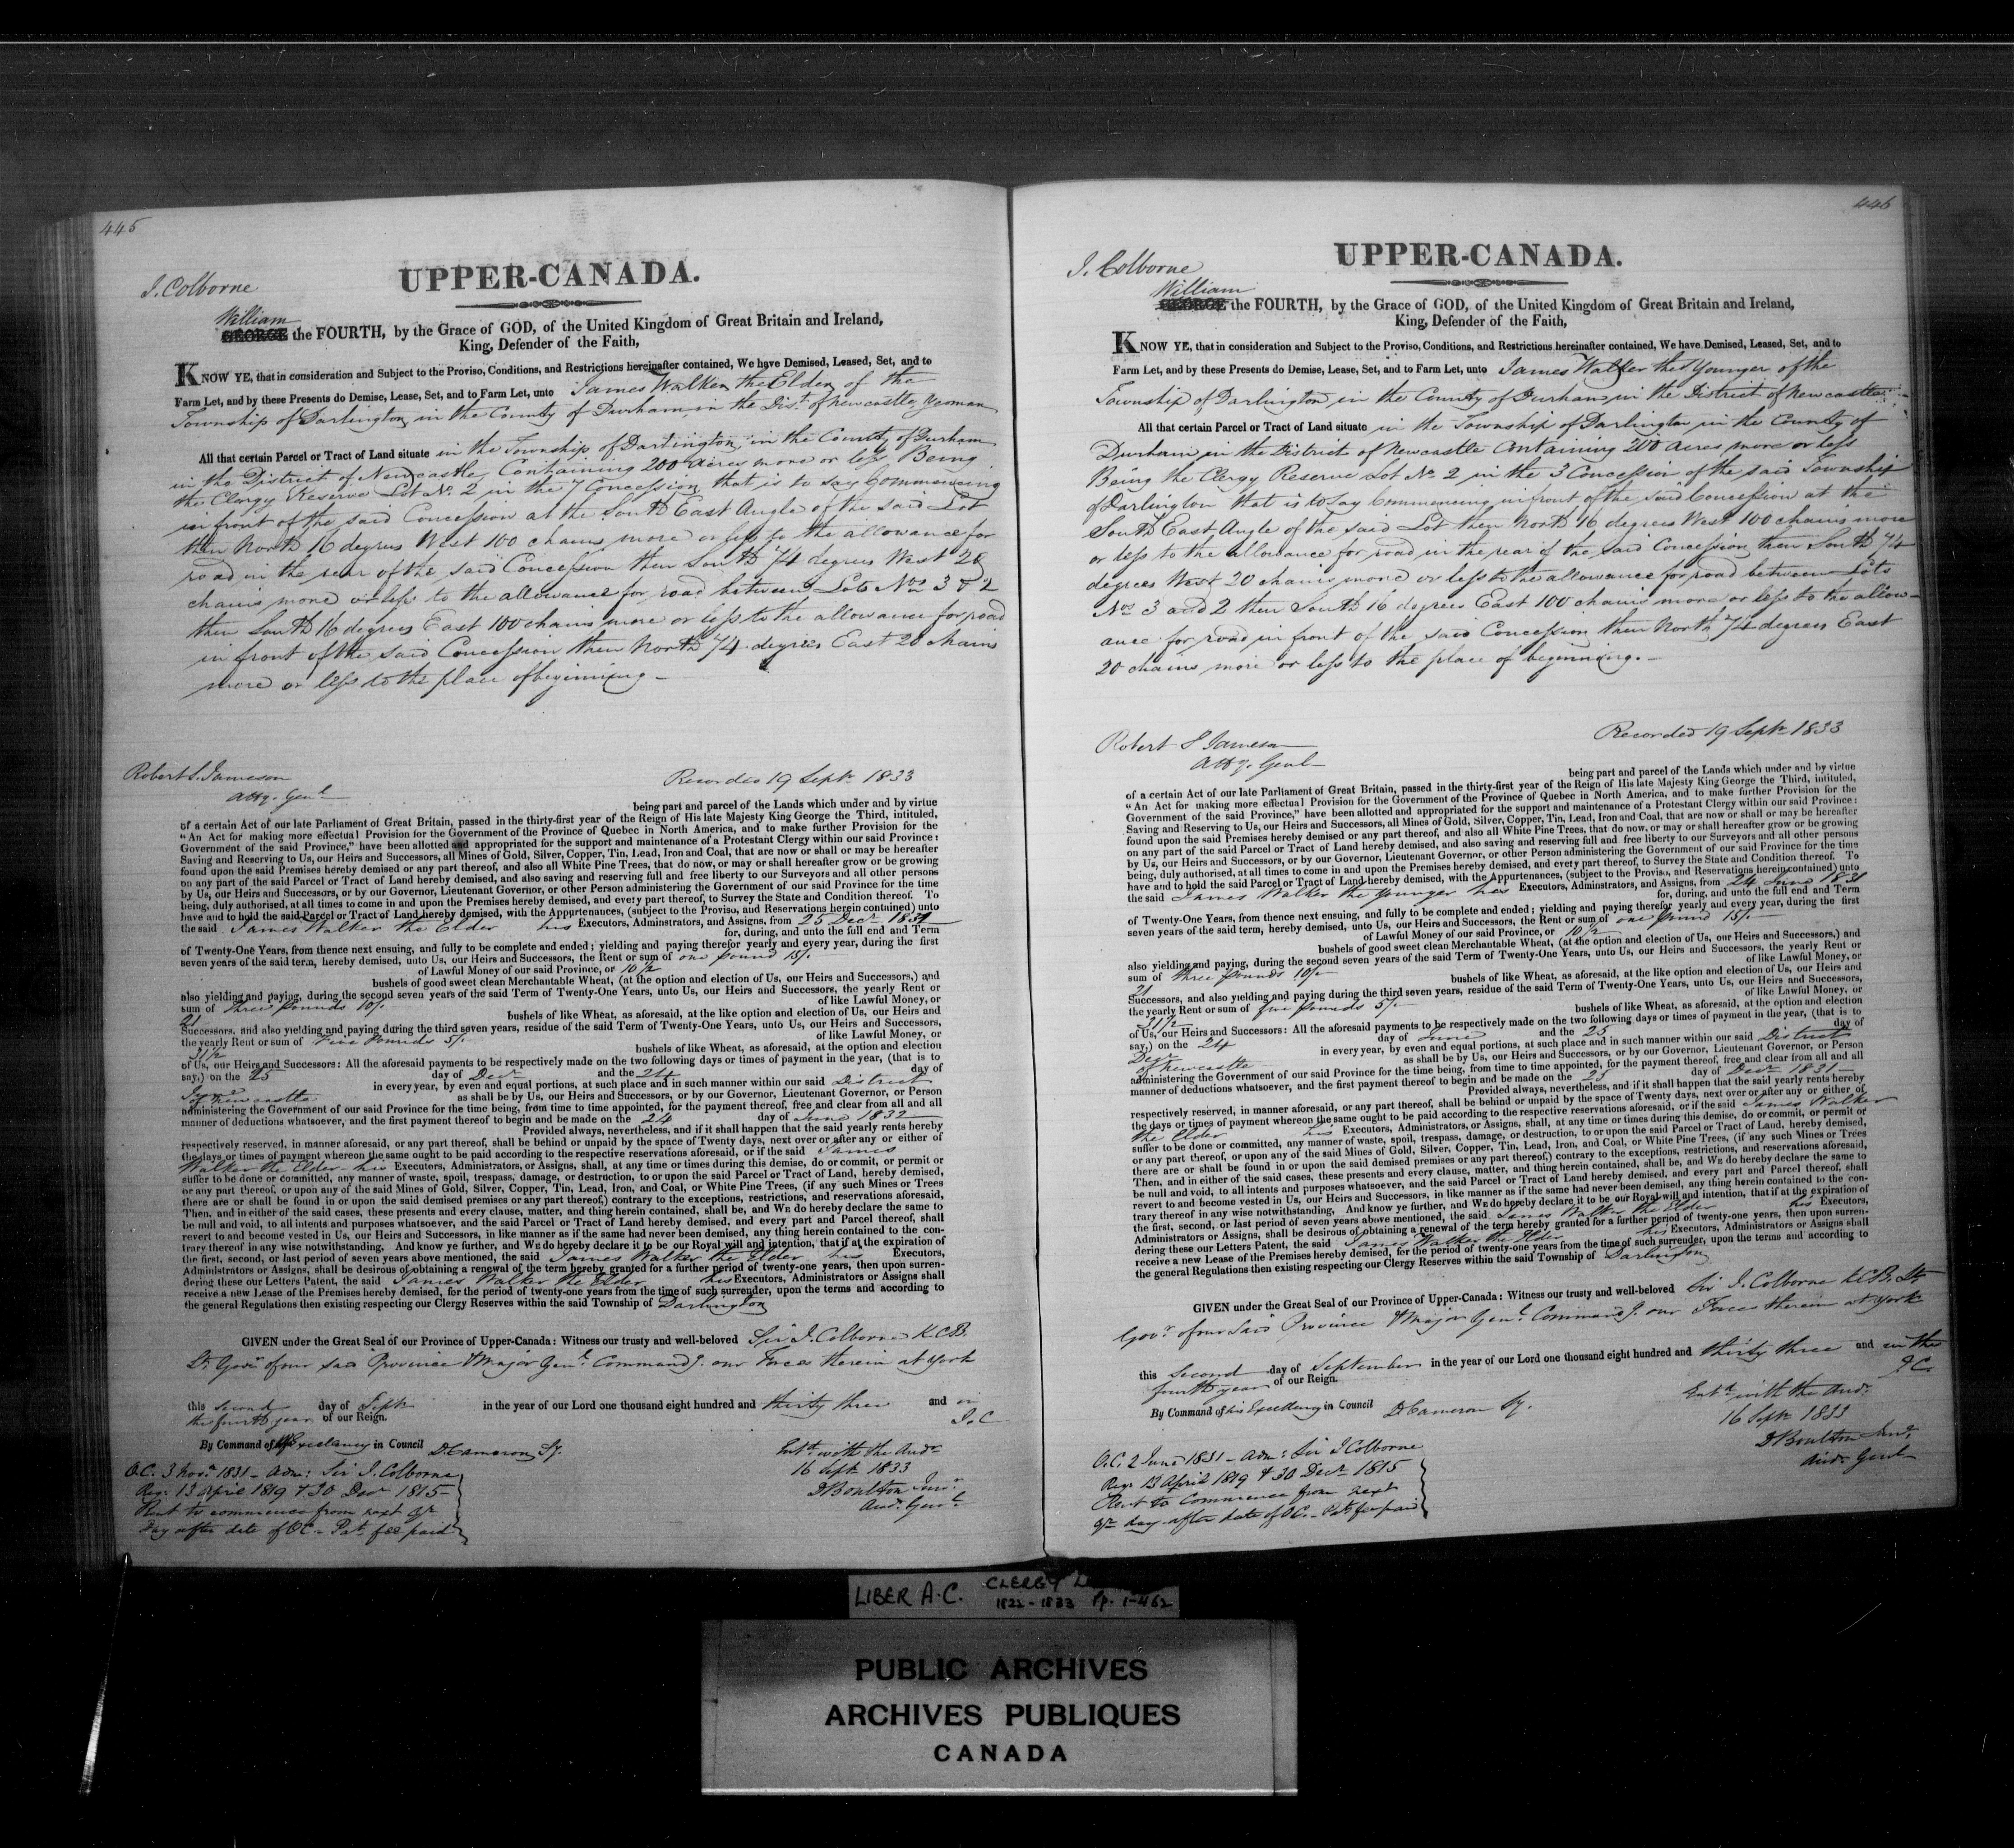 445
UPPER-CANADA.
J. Colborne
William
GEORGE the FOURTH, by the Grace of GOD, of the United Kingdom of Great Britain and Ireland,
King, Defender of the Faith,
KNOW YE, that in consideration and Subject to the Proviso, Conditions, and Restrictions hereinafter contained, We have Demised, Leased, Set, and to
Farm Let, and by these Presents do Demise, Lease, Set, and to Farm Let, unto James Walker the Elder of the
Township of Darlington in the County of Durham in the Dist. of Newcastle Yeoman
All that certain Parcel or Tract of Land situate in the Township of Darlington in the County of Durham
in the District of Newcastle Containing 200 acres more or less Being
the Clergy Reserve Lot No. 2 in the 7 Concession that is to say Commencing
in front of the said Concession at the South East Angle of the said Lot
then North 16 degrees West 100 chains more or less to the allowance for
road in the rear of the said Concession then South 74 degrees West 20
chains more or less to the allowance for road between Lots Nos 3 & 2
then South 16 degrees East 100 chains more or less to the allowance for road
in front of the said Concession then North 74 degrees East 20 chains
more or less to the place of beginning.
Robert S. Jameson
Atty. Genl
Recorded 19 Septr 1833
being part and parcel of the Lands which under and by virtue
of a certain Act of our late Parliament of Great Britain, passed in the thirty-first year of the Reign of His late Majesty King George the Third, intituled,
"An Act for making more effectual Provision for the Government of the Province of Quebec in North America, and to make further Provision for the
Government of the said Province," have been allotted and appropriated for the support and maintenance of a Protestant Clergy within our said Province:
Saving and Reserving to Us, our Heirs and Successors, all Mines of Gold, Silver, Copper, Tin, Lead, Iron and Coal, that are now or shall or may be hereafter
found upon the said Premises hereby demised or any part thereof, and also all White Pine Trees, that do now, or may or shall hereafter grow or be growing
on any part of the said Parcel or Tract of Land hereby demised, and also saving and reserving full and free liberty to our Surveyors and all other persons
by Us, our Heirs and Successors, or by our Governor, Lieutenant Governor, or other Person administering the Government of our said Province for the time
being, duly authorised, at all times to come in and upon the Premises hereby demised, and every part thereof, to Survey the State and Condition thereof. To
have and to hold the said Parcel or Tract of Land hereby demised, with the Appurtenances, (subject to the Proviso, and Reservations herein contained) unto
the said James Walker the Elder his Executors, Adminstrators, and Assigns, from 25 Decr 1831
for, during, and unto the full end and Term
of Twenty-One Years, from thence next ensuing, and fully to be complete and ended; yielding and paying therefor yearly and every year, during the first
seven years of the said term, hereby demised, unto Us, our Heirs and Successors, the Rent or sum of one pound 15/.
of Lawful Money of our said Province, or 10½
bushels of good sweet clean Merchantable Wheat, (at the option and election of Us, our Heirs and Successors,) and
also yielding and paying, during the second seven years of the said Term of Twenty-One Years, unto Us, our Heirs and Successors, the yearly Rent or
sum of three pounds 10/. of like Lawful Money, or
21 bushels of like Wheat, as aforesaid, at the like option and election of Us, our Heirs and
Successors, and also yielding and paying during the third seven years, residue of the said Term of Twenty-One Years, unto Us, our Heirs and Successors,
the yearly Rent or sum of Five Pounds 5/. of like Lawful Money, or
31½ bushels of like Wheat, as aforesaid, at the option and election
of Us, our Heirs and Successors: All the aforesaid payments to be respectively made on the two following days or times of payment in the year, (that is to
say,) on the 25 day of Decr and the 24 day of
June in every year, by even and equal portions, at such place and in such manner within our said District
of Newcastle as shall be by Us, our Heirs and Successors, or by our Governor, Lieutenant Governor, or Person
administering the Government of our said Province for the time being, from time to time appointed, for the payment thereof, free and clear from all and all
manner of deductions whatsoever, and the first payment thereof to begin and be made on the 24 day of June 1832
Provided always, nevertheless, and if it shall happen that the said yearly rents hereby
respectively reserved, in manner aforesaid, or any part thereof, shall be behind or unpaid by the space of Twenty days, next over or after any or either of
the days or times of payment whereon the same ought to be paid according to the respective reservations aforesaid, or if the said James
Walker the Elder his Executors, Administrators, or Assigns, shall, at any time or times during this demise, do or commit, or permit or
suffer to be done or committed, any manner of waste, spoil, trespass, damage, or destruction, to or upon the said Parcel or Tract of Land, hereby demised,
or any part thereof, or upon any of the said Mines of Gold, Silver, Copper, Tin, Lead, Iron, and Coal, or White Pine Trees, (if any such Mines or Trees
there are or shall be found in or upon the said demised premises or any part thereof,) contrary to the exceptions, restrictions, and reservations aforesaid,
Then, and in either of the said cases, these presents and every clause, matter, and thing herein contained, shall be, and WE do hereby declare the same to
be null and void, to all intents and purposes whatsoever, and the said Parcel or Tract of Land hereby demised, and every part and Parcel thereof, shall
revert to and become vested in Us, our Heirs and Successors, in like manner as if the same had never been demised, any thing herein contained to the con-
trary thereof in any wise notwithstanding. And know ye further, and WE do hereby declare it to be our Royal will and intention, that if at the expiration of
the first, second, or last period of seven years above mentioned, the said James Walker the Elder his Executors,
Administrators or Assigns, shall be desirous of obtaining a renewal of the term hereby granted for a further period of twenty-one years, then upon surren-
dering these our Letters Patent, the said James Walker the Elder his Executors, Administrators or Assigns shall
receive a new Lease of the Premises hereby demised, for the period of twenty-one years from the time of such surrender, upon the terms and according to
the general Regulations then existing respecting our Clergy Reserves within the said Township of Darlington
GIVEN under the Great Seal of our Province of Upper-Canada: Witness our trusty and well-beloved Sir J. Colborne K.C.B.
Lt. Govr of our said Province & Major Genl. Commandg. our Forces therein at York
this Second day of Septr in the year of our Lord one thousand eight hundred and thirty three and in
the fourth year of our Reign. J.C
By Command of his Excellency in Council D. Cameron Sy.
O.C. 3 Novr 1831 - Adm: Sir J. Colborne
Regs 13 April 1819 & 30 Decr 1815
Rent to commence from next qr
day after date of OC - Pat. fee paid
Entd with the Audr
16 Septr 1833
D Boulton Junr.
Audr. Genl
446
UPPER-CANADA.
J. Colborne
William
GEORGE the FOURTH, by the Grace of GOD, of the United Kingdom of Great Britain and Ireland,
King, Defender of the Faith,
KNOW YE, that in consideration and Subject to the Proviso, Conditions, and Restrictions hereinafter contained, We have Demised, Leased, Set, and to
Farm Let, and by these Presents do Demise, Lease, Set, and to Farm Let, unto James Walker the Younger of the
Township of Darlington in the County of Durham in the District of Newcastle
All that certain Parcel or Tract of Land situate in the Township of Darlington in the County of
Durham in the District of Newcastle Containing 200 acres more or less
Being the Clergy Reserve Lot No. 2 in the 3 Concession of the said Township
of Darlington that is to say Commencing in front of the said Concession at the
South East Angle of the said Lot then North 16 degrees West 100 chains more
or less to the allowance for road in the rear of the said Concession then South 74
degrees West 20 chains more or less to the allowance for road between Lots
Nos 3 and 2 then South 16 degrees East 100 chains more or less to the allow-
ance for road in front of the said Concession then North 74 degrees East
20 chains more or less to the place of beginning.
Robert S Jameson
Atty. Genl
Recorded 19 Septr 1833
being part and parcel of the Lands which under and by virtue
of a certain Act of our late Parliament of Great Britain, passed in the thirty-first year of the Reign of His late Majesty King George the Third, intituled,
"An Act for making more effectual Provision for the Government of the Province of Quebec in North America, and to make further Provision for the
Government of the said Province," have been allotted and appropriated for the support and maintenance of a Protestant Clergy within our said Province:
Saving and Reserving to Us, our Heirs and Successors, all Mines of Gold, Silver, Copper, Tin, Lead, Iron and Coal, that are now or shall or may be hereafter
found upon the said Premises hereby demised or any part thereof, and also all White Pine Trees, that do now, or may or shall hereafter grow or be growing
on any part of the said Parcel or Tract of Land hereby demised, and also saving and reserving full and free liberty to our Surveyors and all other persons
by Us, our Heirs and Successors, or by our Governor, Lieutenant Governor, or other Person administering the Government of our said Province for the time
being, duly authorised, at all times to come in and upon the Premises hereby demised, and every part thereof, to Survey the State and Condition thereof. To
have and to hold the said Parcel or Tract of Land hereby demised, with the Appurtenances, (subject to the Proviso, and Reservations herein contained) unto
the said James Walker the Younger his Executors, Adminstrators, and Assigns, from 24 June 1831
for, during, and unto the full end and Term
of Twenty-One Years, from thence next ensuing, and fully to be complete and ended; yielding and paying therefor yearly and every year, during the first
seven years of the said term, hereby demised, unto Us, our Heirs and Successors, the Rent or sum of one pound 15/.
of Lawful Money of our said Province, or 10½
bushels of good sweet clean Merchantable Wheat, (at the option and election of Us, our Heirs and Successors,) and
also yielding and paying, during the second seven years of the said Term of Twenty-One Years, unto Us, our Heirs and Successors, the yearly Rent or
sum of three pounds 10/. of like Lawful Money, or
21 bushels of like Wheat, as aforesaid, at the like option and election of Us, our Heirs and
Successors, and also yielding and paying during the third seven years, residue of the said Term of Twenty-One Years, unto Us, our Heirs and Successors,
the yearly Rent or sum of five pounds 5/. of like Lawful Money, or
31½ bushels of like Wheat, as aforesaid, at the option and election
of Us, our Heirs and Successors: All the aforesaid payments to be respectively made on the two following days or times of payment in the year, (that is to
say,) on the 24 day of June and the 25 day of
Decr in every year, by even and equal portions, at such place and in such manner within our said District
of Newcastle as shall be by Us, our Heirs and Successors, or by our Governor, Lieutenant Governor, or Person
administering the Government of our said Province for the time being, from time to time appointed, for the payment thereof, free and clear from all and all
manner of deductions whatsoever, and the first payment thereof to begin and be made on the 25 day of Decr 1831
Provided always, nevertheless, and if it shall happen that the said yearly rents hereby
respectively reserved, in manner aforesaid, or any part thereof, shall be behind or unpaid by the space of Twenty days, next over or after any or either of
the days or times of payment whereon the same ought to be paid according to the respective reservations aforesaid, or if the said James Walker
the Elder his Executors, Administrators, or Assigns, shall, at any time or times during this demise, do or commit, or permit or
suffer to be done or committed, any manner of waste, spoil, trespass, damage, or destruction, to or upon the said Parcel or Tract of Land, hereby demised,
or any part thereof, or upon any of the said Mines of Gold, Silver, Copper, Tin, Lead, Iron, and Coal, or White Pine Trees, (if any such Mines or Trees
there are or shall be found in or upon the said demised premises or any part thereof,) contrary to the exceptions, restrictions, and reservations aforesaid,
Then, and in either of the said cases, these presents and every clause, matter, and thing herein contained, shall be, and WE do hereby declare the same to
be null and void, to all intents and purposes whatsoever, and the said Parcel or Tract of Land hereby demised, and every part and Parcel thereof, shall
revert to and become vested in Us, our Heirs and Successors, in like manner as if the same had never been demised, any thing herein contained to the con-
trary thereof in any wise notwithstanding. And know ye further, and WE do hereby declare it to be our Royal will and intention, that if at the expiration of
the first, second, or last period of seven years above mentioned, the said James Walker the Elder his Executors,
Administrators or Assigns, shall be desirous of obtaining a renewal of the term hereby granted for a further period of twenty-one years, then upon surren-
dering these our Letters Patent, the said James Walker the Elder his Executors, Administrators or Assigns shall
receive a new Lease of the Premises hereby demised, for the period of twenty-one years from the time of such surrender, upon the terms and according to
the general Regulations then existing respecting our Clergy Reserves within the said Township of Darlington
GIVEN under the Great Seal of our Province of Upper-Canada: Witness our trusty and well-beloved Sir J. Colborne K.C.B. Lt.
Govr of our said Province & Major Genl. Commandg. our Forces therein at York
this Second day of September in the year of our Lord one thousand eight hundred and thirty three and in the
fourth year of our Reign. J.C.
By Command of his Excellency in Council D. Cameron Sy.
Entd with the Audr.
16 Septr 1833
D Boulton Junr.
Audr Genl
O.C. 2 June 1831 - Adm: Sir J Colborne
Regs 13 April 1819 & 30 Decr 1815
Rent to Commence from next
qr day after date of OC. - Pat. fee paid
LIBER A.C. CLERGY
1822-1833 Pp. 1-462
PUBLIC ARCHIVES
ARCHIVES PUBLIQUES
CANADA